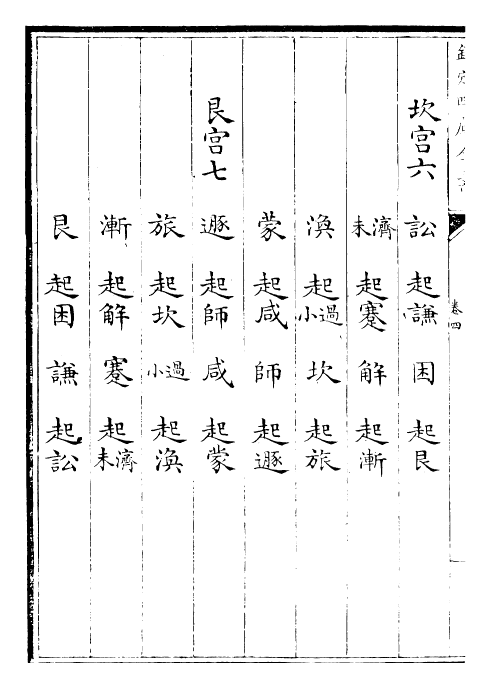 欽定四庫全書
卷四
坎宮六 訟 起謙 困 起艮
未濟 起蹇 解 起漸
渙 起小過 坎 起旅
蒙 起咸 師 起遯
艮宮七 遯 起師 咸 起蒙
旅 起坎 小過 起渙
漸 起解 蹇 起未濟
艮 起困 謙 起訟